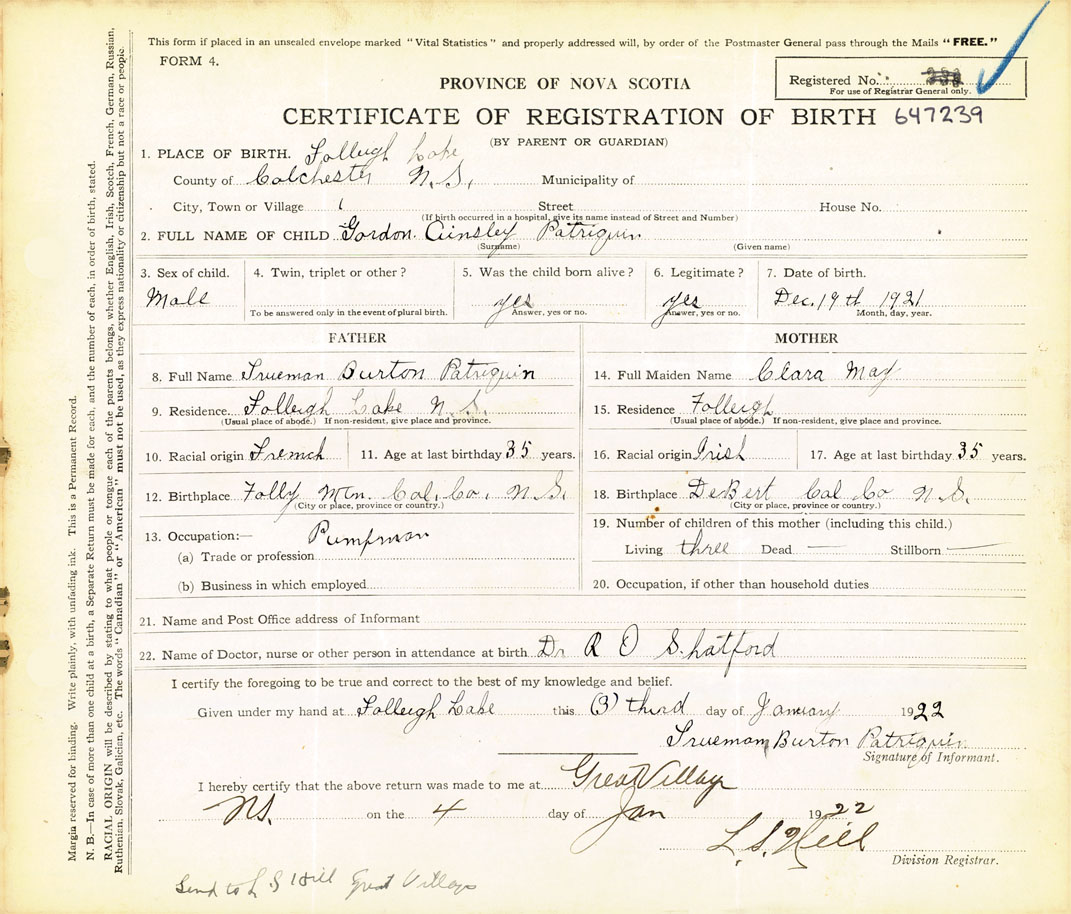 This form if placed in an unsealed envelope marked "Vital Statistics" and properly addressed will, by order of the Postmaster General pass through the Mails "FREE."
FORM 4.
Registered No.
For use of Registrar General only.
PROVINCE OF NOVA SCOTIA
CERTIFICATE OF REGISTRATION OF BIRTH 647239
(BY PARENT OR GUARDIAN)
1. PLACE OF BIRTH. Folleigh Lake
County of Colchester N.S. Municipality of
City, Town or Village Street House No.
(If birth occurred in a hospital, give its name instead of Street and Number)
2. FULL NAME OF CHILD Gordon Patriquin
(Surname) (Given name)
3. Sex of child. 4. Twin, triplet or other? 5. Was the child born alive? 6. Legitimate? 7. Date of birth.
Male yes yes Dec. 19th 1921
To be answered only in the event of plural birth. Answer, yes or no. Answer, yes or no. Month, day, year.
FATHER MOTHER
8. Full Name Trueman Burton Patriquin 14. Full Maiden Name Clara May
9. Residence. Folleigh Lake N.S. 15. Residence Folleigh
(Usual place of abode.) If non-resident, give place and province. (Usual place of abode.) If non-resident, give place and province.
10. Racial origin French 11. Age at last birthday 35 years. 16. Racial origin Irish 17. Age at last birthday 35 years.
12. Birthplace Folly Mtn. Col. Co. N.S. 18. Birthplace DeBert Col Co N.S.
(City or place, province or country.) (City or place, province or country.)
13. Occupation:— Pumpman 19. Number of children of this mother (including this child.)
(a) Trade or profession Living three Dead — Stillborn —
(b) Business in which employed 20. Occupation, if other than household duties
21. Name and Post Office address of Informant
22. Name of Doctor, nurse or other person in attendance at birth Dr R O Shatford
I certify the foregoing to be true and correct to the best of my knowledge and belief.
Given under my hand at Folleigh Lake this (3) third day of January 1922
Trueman Burton Patriquin
Signature of Informant.
I hereby certify that the above return was made to me at Great Village
NS. on the 4 day of Jan 1922
L. S. Hill
Division Registrar.
Send to L S Hill Great Village
Margin reserved for binding. Write plainly, with unfading ink. This is a Permanent Record.
N. B.—In case of more than one child at a birth, a Separate Return must be made for each, and the number of each, in order of birth, stated.
RACIAL ORIGIN will be described by stating to what people or tongue each of the parents belongs, whether English, Irish, Scotch, French, German, Russian,
Ruthenian, Slovak, Galician, etc. The words "Canadian" or "American" must not be used, as they express nationality or citizenship but not a race or people.